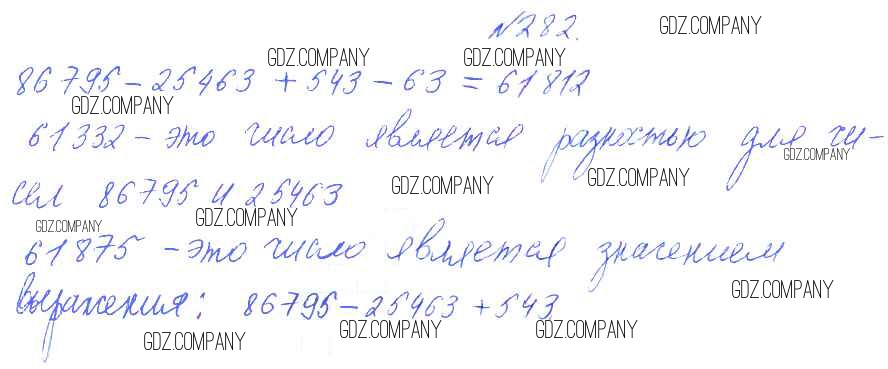 №282.
86795 - 25463 + 543 - 63 = 61812
61332 - это число является разностью для чи-
сел 86795 и 25463
61875 - это число является значением
выражения: 86795 - 25463 + 543
GDZ.COMPANY
GDZ.COMPANY
GDZ.COMPANY
GDZ.COMPANY
GDZ.COMPANY
GDZ.COMPANY
GDZ.COMPANY
GDZ.COMPANY
GDZ.COMPANY
GDZ.COMPANY
GDZ.COMPANY
GDZ.COMPANY
GDZ.COMPANY